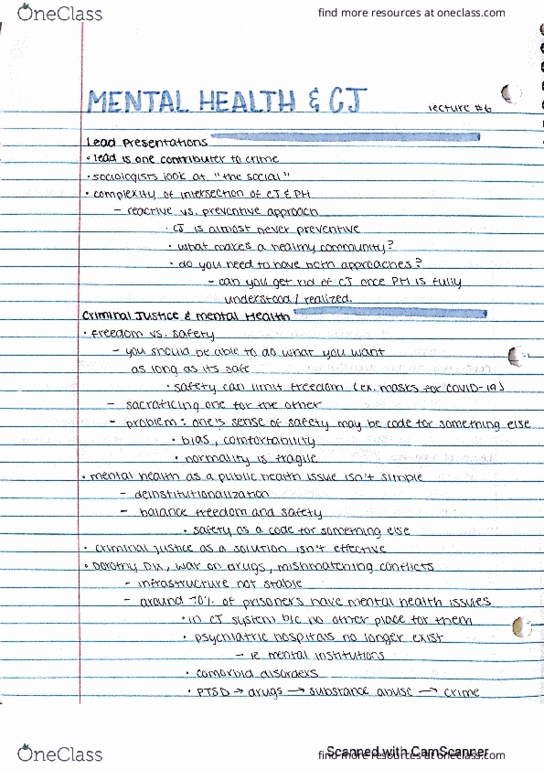 OneClass
find more resources at oneclass.com
MENTAL HEALTH & CJ
lecture #6
Lead Presentations
• lead is one contributer to crime
• sociologists look at "the social"
• complexity of intersection of CJ & PH
– reactive vs. preventive approach
• CJ is almost never preventive
• what makes a healthy community?
• do you need to have both approaches?
– can you get rid of CJ once PH is fully
understood / realized.
Criminal Justice & Mental Health
• freedom vs. safety
– you should be able to do what you want
as long as its safe
• safety can limit freedom (ex. masks for COVID-19)
– sacratficing one for the other
– problem: one's sense of safety may be code for something else
• bias, comfortability
• normality is fragile
• mental health as a public health issue isn't simple
– deinstitutionalization
– balance freedom and safety
• safety as a code for something else
• criminal justice as a solution isn't effective
• Dorothy Dix, war on drugs, mishmatching conflicts
– infrastructure not stable
– around 70% of prisoners have mental health issues
• in CJ system b/c no other place for them
• psychiatric hospitals no longer exist
– ie. mental institutions
• comorbid disorders
• PTSD → drugs → substance abuse → crime
OneClass
Scanned with CamScanner
find more resources at oneclass.com